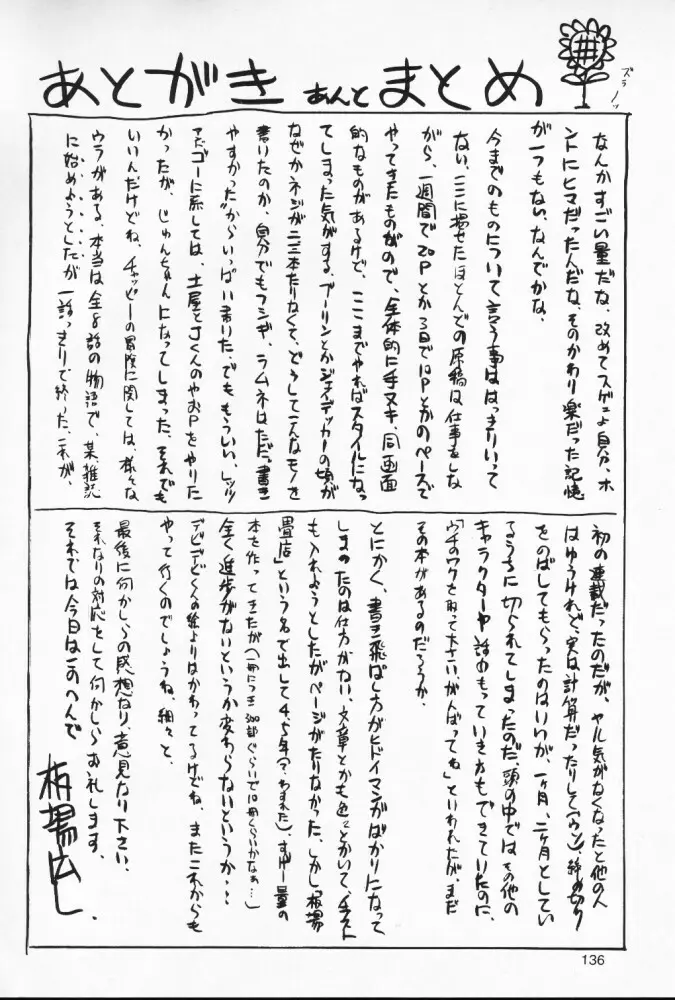 あとがき あんと まとめ
ズラーッ
なんかすごい量だな、改めてスゲェよ自分、ホ
ントにヒマだった人だな、そのかわり楽だった記憶
が一つもない、なんでかな、
今までのものについて言う事ははっきりいって
ない、ここに掲せたほとんどの原稿は仕事をしな
がら、一週間で20Pとか3日で12Pとかのペースで
やってきたものなので、全体的に手ヌキ、同画面
的なものがあるけど、ここまでやればスタイルになっ
てしまった気がする、ブーリンとかジェイデッカーの頃が
なぜかネジが二三本たりなくて、どうしてこんなモノを
書いたのか、自分でもフシギ、ラムネはただ"書き
やすかった"からいっぱい書いた、でももういい、レッツ
&ゴーに系しては、土屋とJくんのやおPをやりた
かったが、じゅんちゃんになってしまった、それでも
いいんだけどね、チャッピーの冒険に関しては、様々な
ウラがある、本当は全8話の物語で、某、雑誌
に始めようとしたが一話っきりで終った、これが、
初の連載だったのだが、ヤル気がなくなったと他の人
はゆうけれど、実は計算だったりして(ウソ)、締め切り
をのばしてもらったのはいいが、一ヶ月、二ヶ月としてい
るうちに切られてしまったのだ、頭の中ではその他の
キャラクターや話のもっていき方もできていたのに、
「ウチのワクを取って下さい、がんばってね」といわれたが、まだ
その本があるのだろうか、
とにかく、書き飛ばし方がヒドイマンガばかりになって
しまったのは仕方がない、文章とかも色々とかいて、イラスト
も入れようとしたがページがたりなかった、しかし「板場
畳店」という名で出して4、5年(?、わすれた)、すげー量の
本を作ってきたが(一冊につき300部ぐらいで10冊くらいかなぁ…)
全く進歩がないというか変わらないというか・・
デビデビくんの絵よりはかわってるけどね、またこれからも
やって行くのでしょうね、細々と、
最後に何かしらの感想なり、意見なり下さい、
それなりの対応をして何かしらお礼します、
それでは今日はこのへんで
板場広し、
136